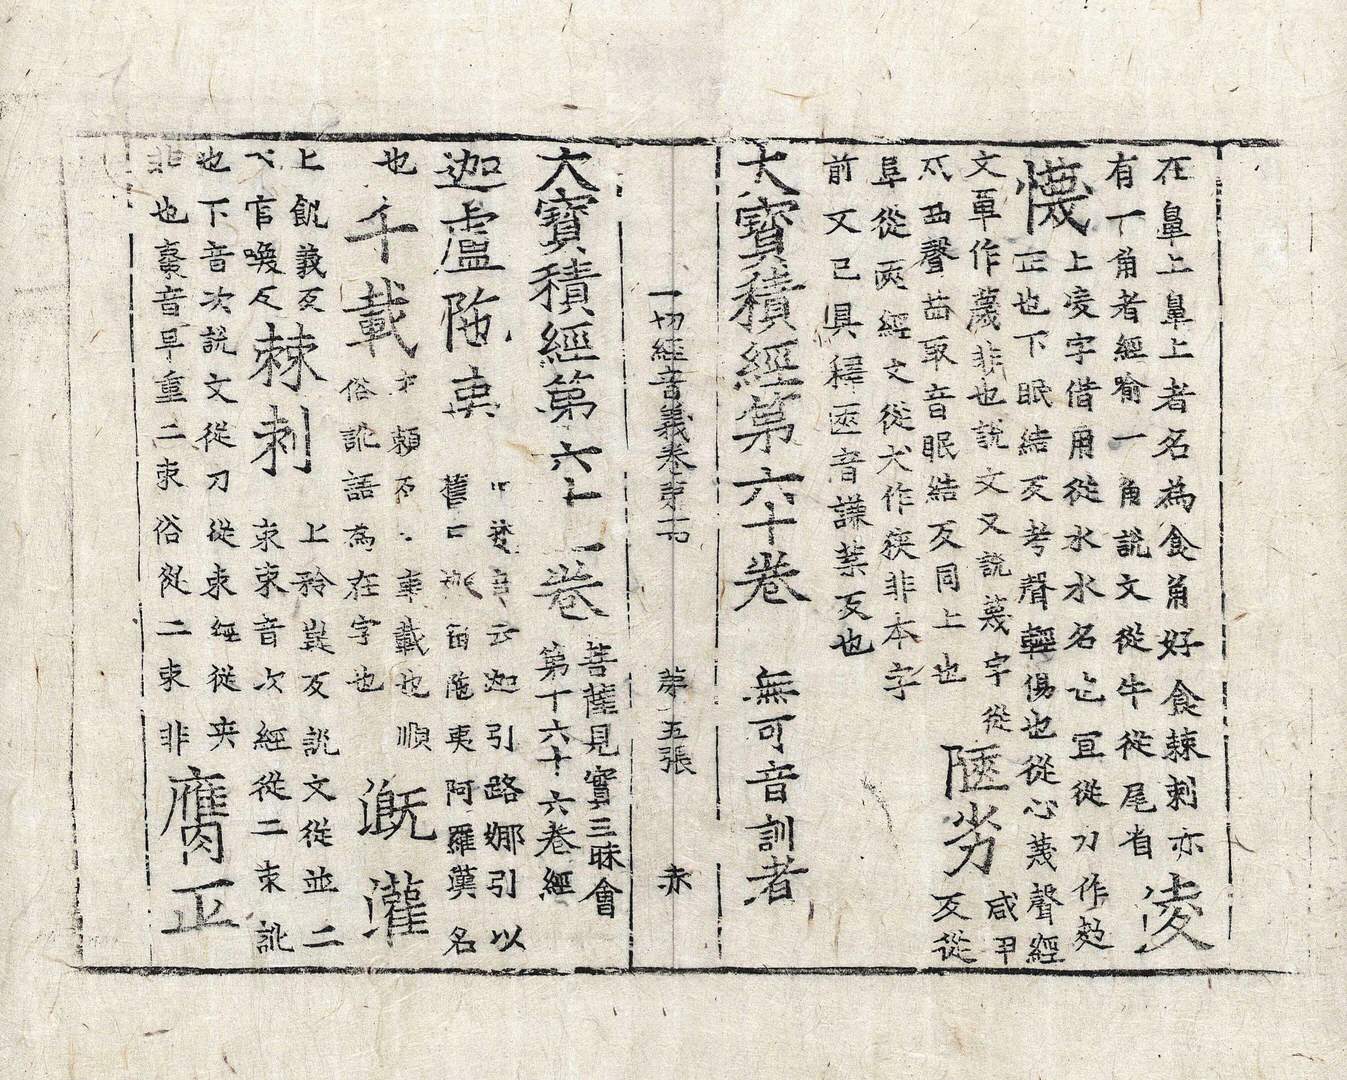 在鼻上鼻上者名為食角好食棘刺亦
有一角者經喻一角說文從牛從尾省
凌
懱
上凌字借用從水水名也宜從力作
正也下眠結反考聲輕傷也從心蔑聲經
文單作蔑非也說文又說蔑字從
苜聲苜取音眠結反同上也
陿劣
咸甲
反從
阜從匧經文從犬作狹非本字
前文已具釋匧音謙葉反也
大寶積經第六十卷
無可音訓者
一切經音義卷第
第五張
赤
大寶積經第六十一卷
菩薩見實三昧會
第十六十六卷經
迦盧陁夷
梵音云迦引路娜引以
舊曰迦留陁夷阿羅漢名
也
千載
事載也順
俗訛語為在字也
溉灌
上飢義反
下官喚反
棘刺
上矜㠱反說文從並二
朿朿音次經從二束訛
也下音次說文從刀從朿經從夾
非也棗音早重二朿俗從二束非
膺正